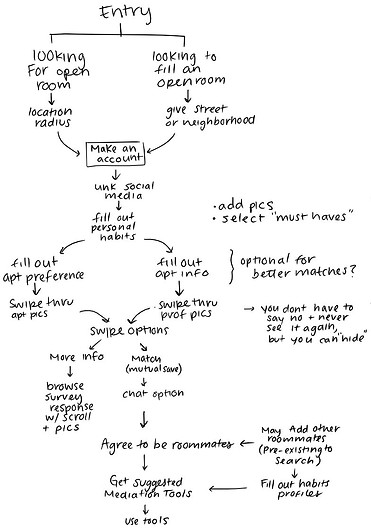 Entry
looking
For open
room
looking to
fill an
open room
location
radius
give street
or neighborhood
Make an
account
link social
media
fill out
personal
habits
• add pics
• select "must haves"
fill out
apt preference
fill out
apt info
optional for
better matches?
Swipe thru
apt pics
swipe thru
prof pics
→ you dont have to
say no + never
see it again,
but you can "hide"
Swipe options
More info
Match
(mutual save)
browse
survey
response
w/ scroll
+ pics
chat option
Agree to be roommates
May Add other
roommates
(Pre-existing to
search)
Fill out habits
profiles
Get suggested
Mediation Tools
use tools